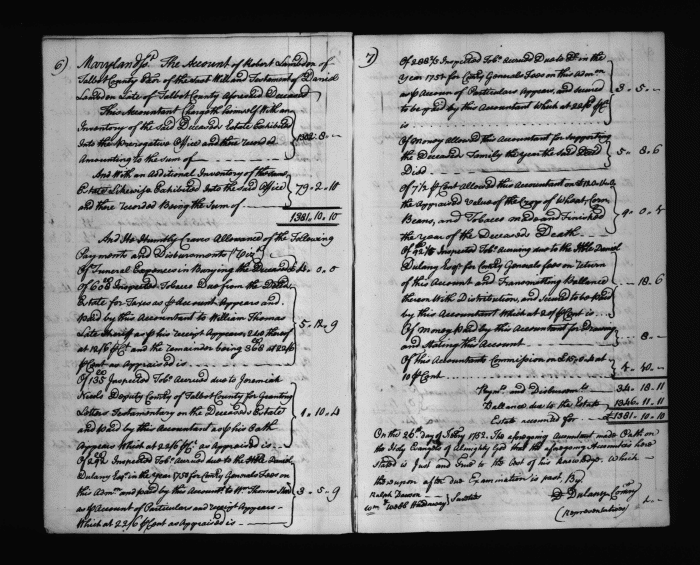 6) Maryland Ss. The Account of Robert Lambdin of
Talbot County Exr of the last Will and Testament of Daniel
Lambdin Late of Talbot County Aforesd Deceased
This Accountant Chargeth himself With an
Inventory of the said Deceased Estate Exhibited
Into the Prerogative Office and there recorded 1302 - 8 - -
Amounting to the sum of
And With an Additional Inventory of the same
Estate Likewise Exhibited Into the said Office 79 - 2 - 10
and there recorded Being the Sum of
1381 - 10 - 10
And He Humbly Craves Allowance of the Following
Payments and Disbursments (Vizt)
Of Funeral Expences in Burying the Deceased 4 - 0 - 0
Of 608 Inspected Tobacco Due from the Deced
Estate for Taxes as p Account Appears and
Paid by this Accountant to William Thomas
Late Sheriff as p his receipt Appears 240 thereof 5 - 12 - 9
at 12/6 p Ct and the remainder being 368 at 22/6
p Cent as Appraised is
Of 135 Inspected Tobo Accrued due to Jeremiah
Nicols Deputy Comry of Talbot County for Granting
Letters Testamentary on the Deceased Estate 1 - 10 - 4
and paid by this Accountant as p his Oath
Appears Which at 22/6 p Ct as Appraised is
Of 292 Inspected Tobo Accrued due to the Hble Daniel
Dulany Esqr in the Year 1751 for Comry Generals Fees on
this Admon and paid by this Accountant to Wm Thomas 3 - 5 - 9
as p Account of Particulars and receipt Appears
Which at 22/6 p Cent as Appraised is
7) Of 288 1/2 Inspected Tobo Accrued Due to Do in the
Year 1752 for Comry Generals Fees on this Admon
as p Account of Particulars Appears, and secured 3 - 5 - -
to be paid by this Accountant Which at 22/6 p Ct
is
Of Money Allowed this Accountant for Supporting
the Deceased Family the year the said Deced 5 - 8 - 6
Died
Of 7 1/2 p Cent Allowed this Accountant on
the Appraised Value of the Crop of Wheat, Corn
Beans, and Tobacco made and Finished 9 - 0 - 4
the Year of the Deceased Death
Of Inspected Tobo Accruing due to the Hble Daniel
Dulany Esqr for Comry Generals fees on return
of this Account and Transmitting Ballance - 18 - 6
thereon With Distribution, and secured to be paid
by this Accountant Which at 22/6 p Cent is
Of Money paid by this Accountant for Drawing
and Stating this Account - 8 -
Of this Accountants Commission on at
10 p Cent
Paymts and Disbursmts 34 - 18 - 11
Ballance due to the Estate 1346 - 11 - 11
Estate accounted for £1381 - 10 - 10
On the 26th day of 1752. The aforegoing Accountant made Oath on
the Holy Evangels of Almighty God that the aforegoing Account as here
Stated is Just and true to the best of his knowledge. Which
thereupon after due Examination is past. By
Ralph Dawson
Wm Webb Haddaway } Sureties
D Dulany Comry
(Representatives)